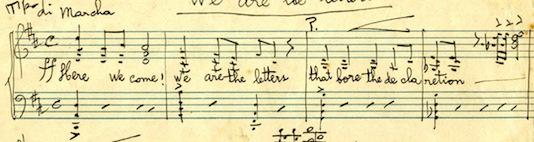 We are the
Tpo di Marcha
P.
ff Here we come! we are the letters that bore the de cla retion